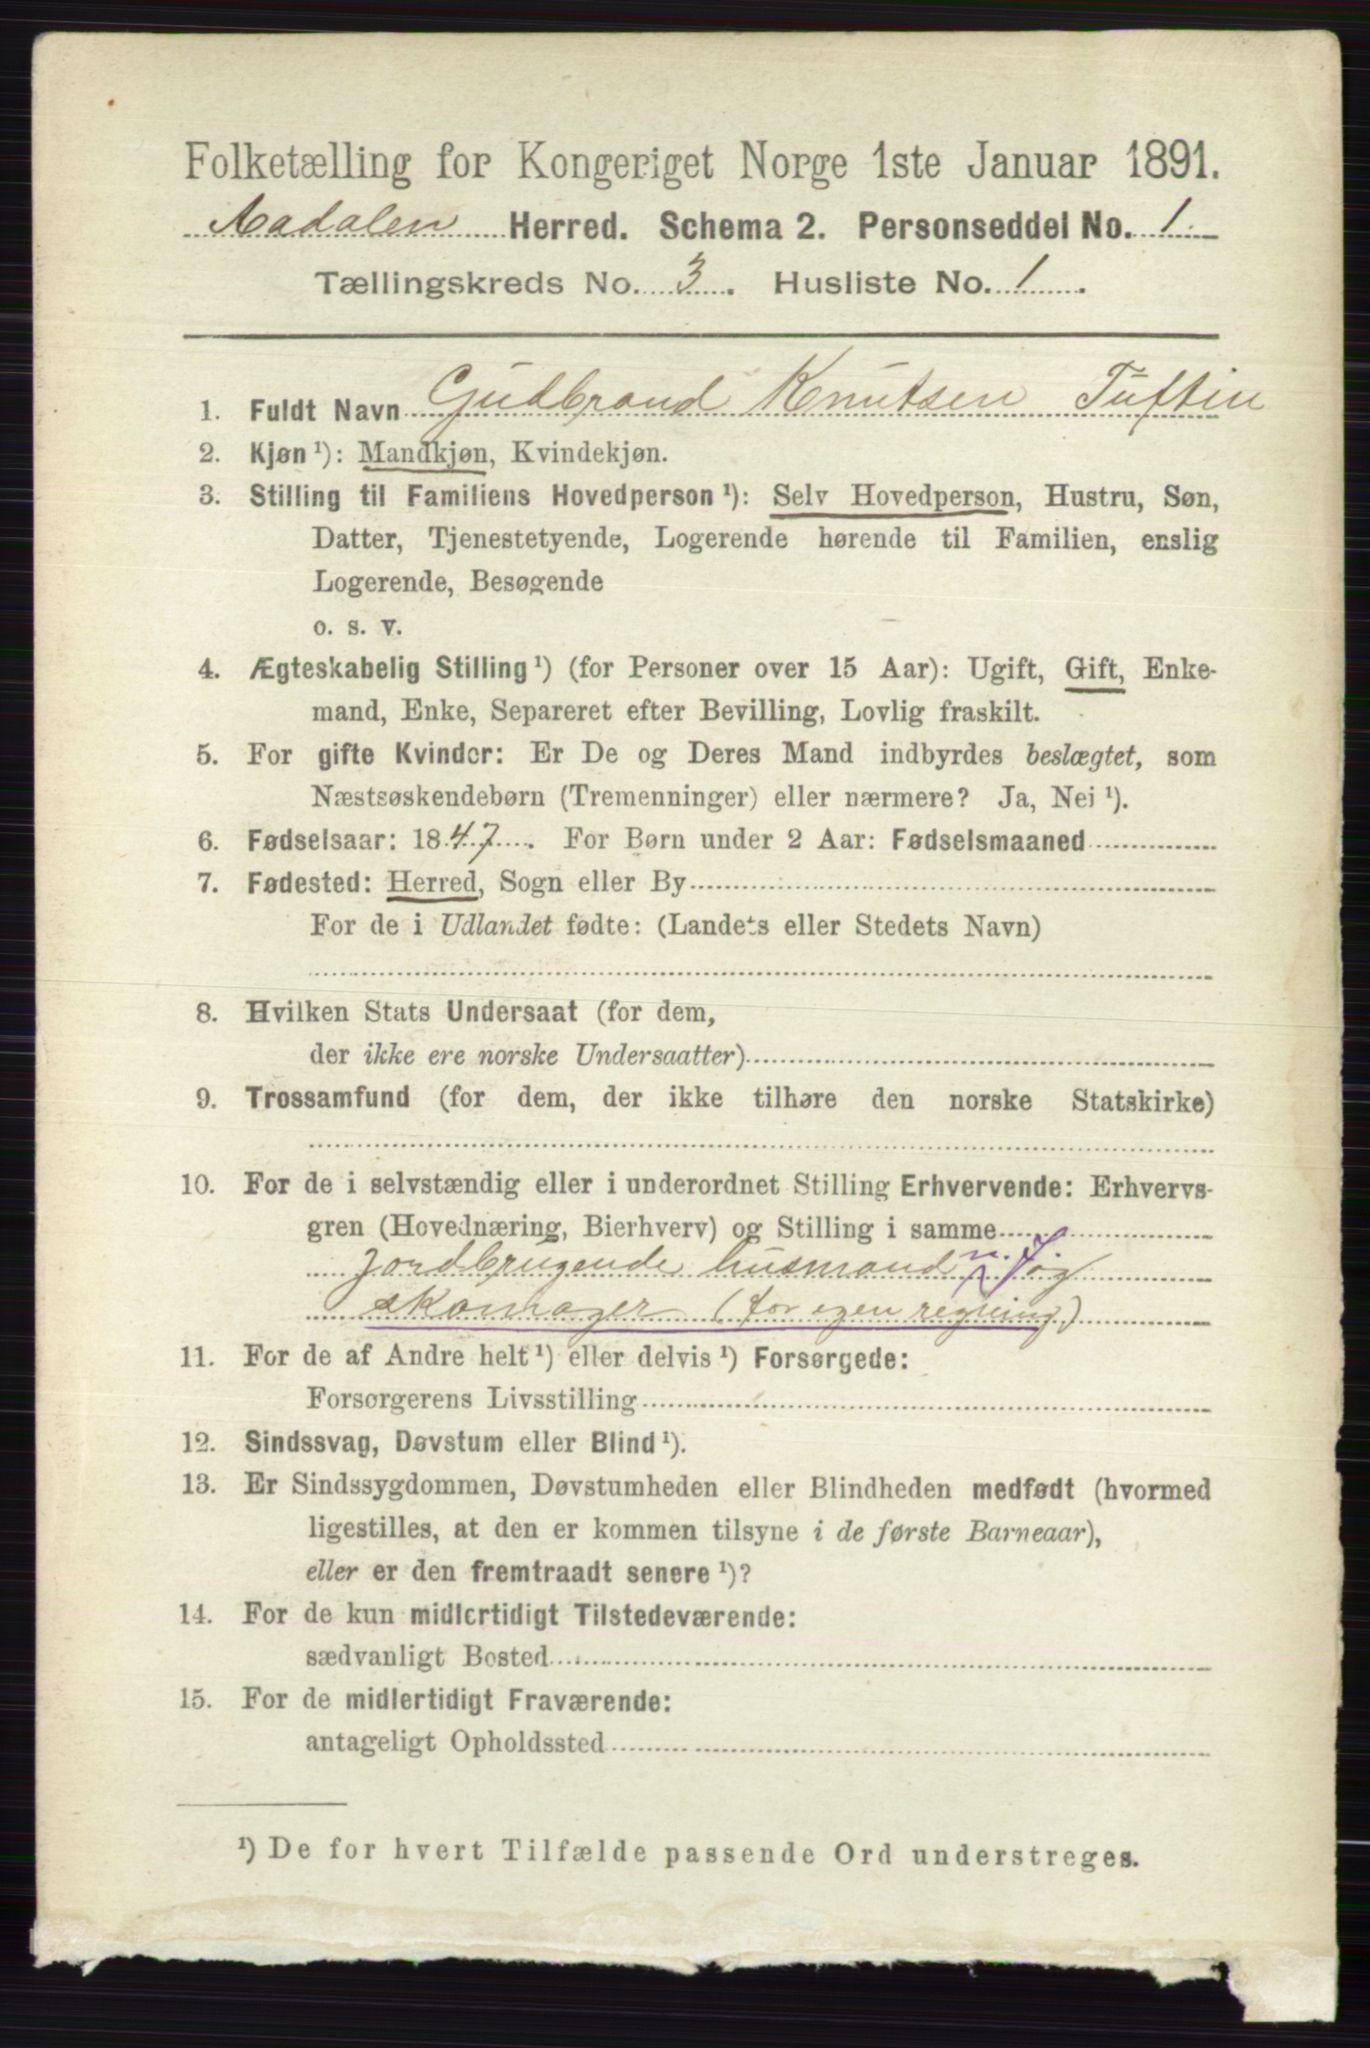 Folketælling for Kongeriget Norge 1ste Januar 1891.
Aadalen Herred. Schema 2. Personseddel No. 1.
Tællingskreds No. 3. Husliste No. 1.
1. Fuldt Navn Gudbrand Knutsen Tuftin
2. Kjøn ¹): Mandkjøn, Kvindekjøn.
3. Stilling til Familiens Hovedperson ¹): Selv Hovedperson, Hustru, Søn,
Datter, Tjenestetyende, Logerende hørende til Familien, enslig
Logerende, Besøgende
o. s. v.
4. Ægteskabelig Stilling ¹) (for Personer over 15 Aar): Ugift, Gift, Enke-
mand, Enke, Separeret efter Bevilling, Lovlig fraskilt.
5. For gifte Kvinder: Er De og Deres Mand indbyrdes beslægtet, som
Næstsøskendebørn (Tremenninger) eller nærmere? Ja, Nei ¹).
6. Fødselsaar: 1847. For Børn under 2 Aar: Fødselsmaaned
7. Fødested: Herred, Sogn eller By
For de i Udlandet fødte: (Landets eller Stedets Navn)
8. Hvilken Stats Undersaat (for dem,
der ikke ere norske Undersaatter)
9. Trossamfund (for dem, der ikke tilhøre den norske Statskirke)
10. For de i selvstændig eller i underordnet Stilling Erhvervende: Erhvervs-
gren (Hovednæring, Bierhverv) og Stilling i samme
jordbrugende husmand m. J. og
skomager (for egen regning)
11. For de af Andre helt ¹) eller delvis ¹) Forsørgede:
Forsørgerens Livsstilling
12. Sindssvag, Døvstum eller Blind ¹).
13. Er Sindssygdommen, Døvstumheden eller Blindheden medfødt (hvormed
ligestilles, at den er kommen tilsyne i de første Barneaar),
eller er den fremtraadt senere ¹)?
14. For de kun midlertidigt Tilstedeværende:
sædvanligt Bosted
15. For de midlertidigt Fraværende:
antageligt Opholdssted
¹) De for hvert Tilfælde passende Ord understreges.